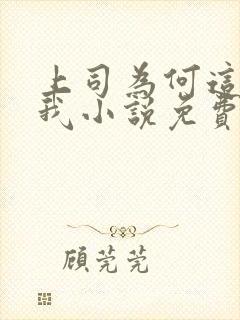 上司為何這
我小說免費
顧莞莞